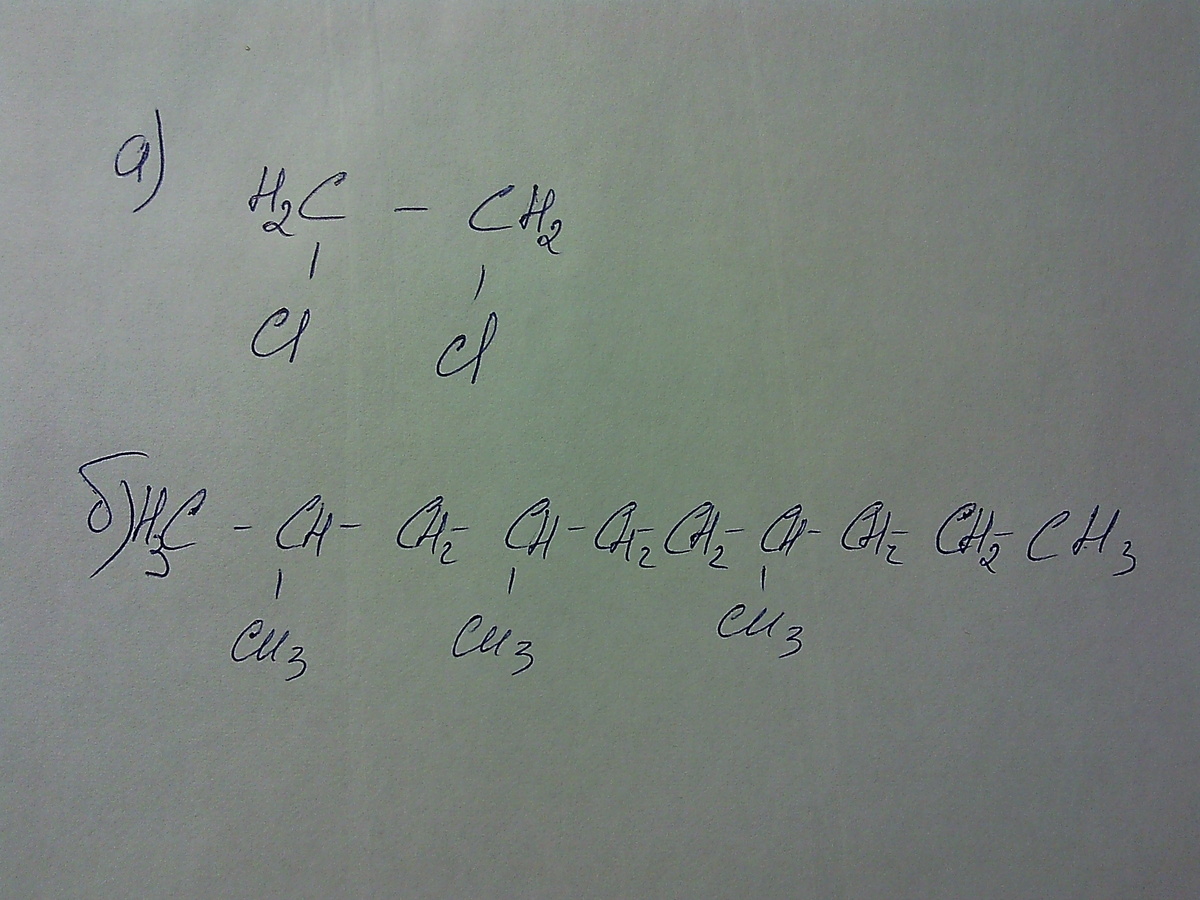 а)
H₂C – CH₂
| |
Cl Cl
б) H₃C – CH – CH₂ – CH – CH₂ – CH₂ – CH – CH₂ – CH₂ – CH₃
| | |
CH₃ CH₃ CH₃